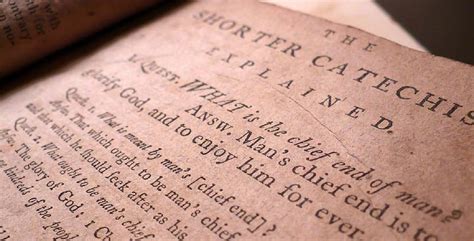 THE
SHORTER CATECHIS
EXPLAINED.
1. QUEST. WHAT is the chief end of man?
Answ. Man's chief end is to
glorify God, and to enjoy him for ever
Quest. 1. What is meant by man's [chief end]?
Answ. That which ought to be man's chief
and that which he should seek after as his
Quest. 2. What ought to be man's chief
The glory of God: 1 C
kindreds of the people